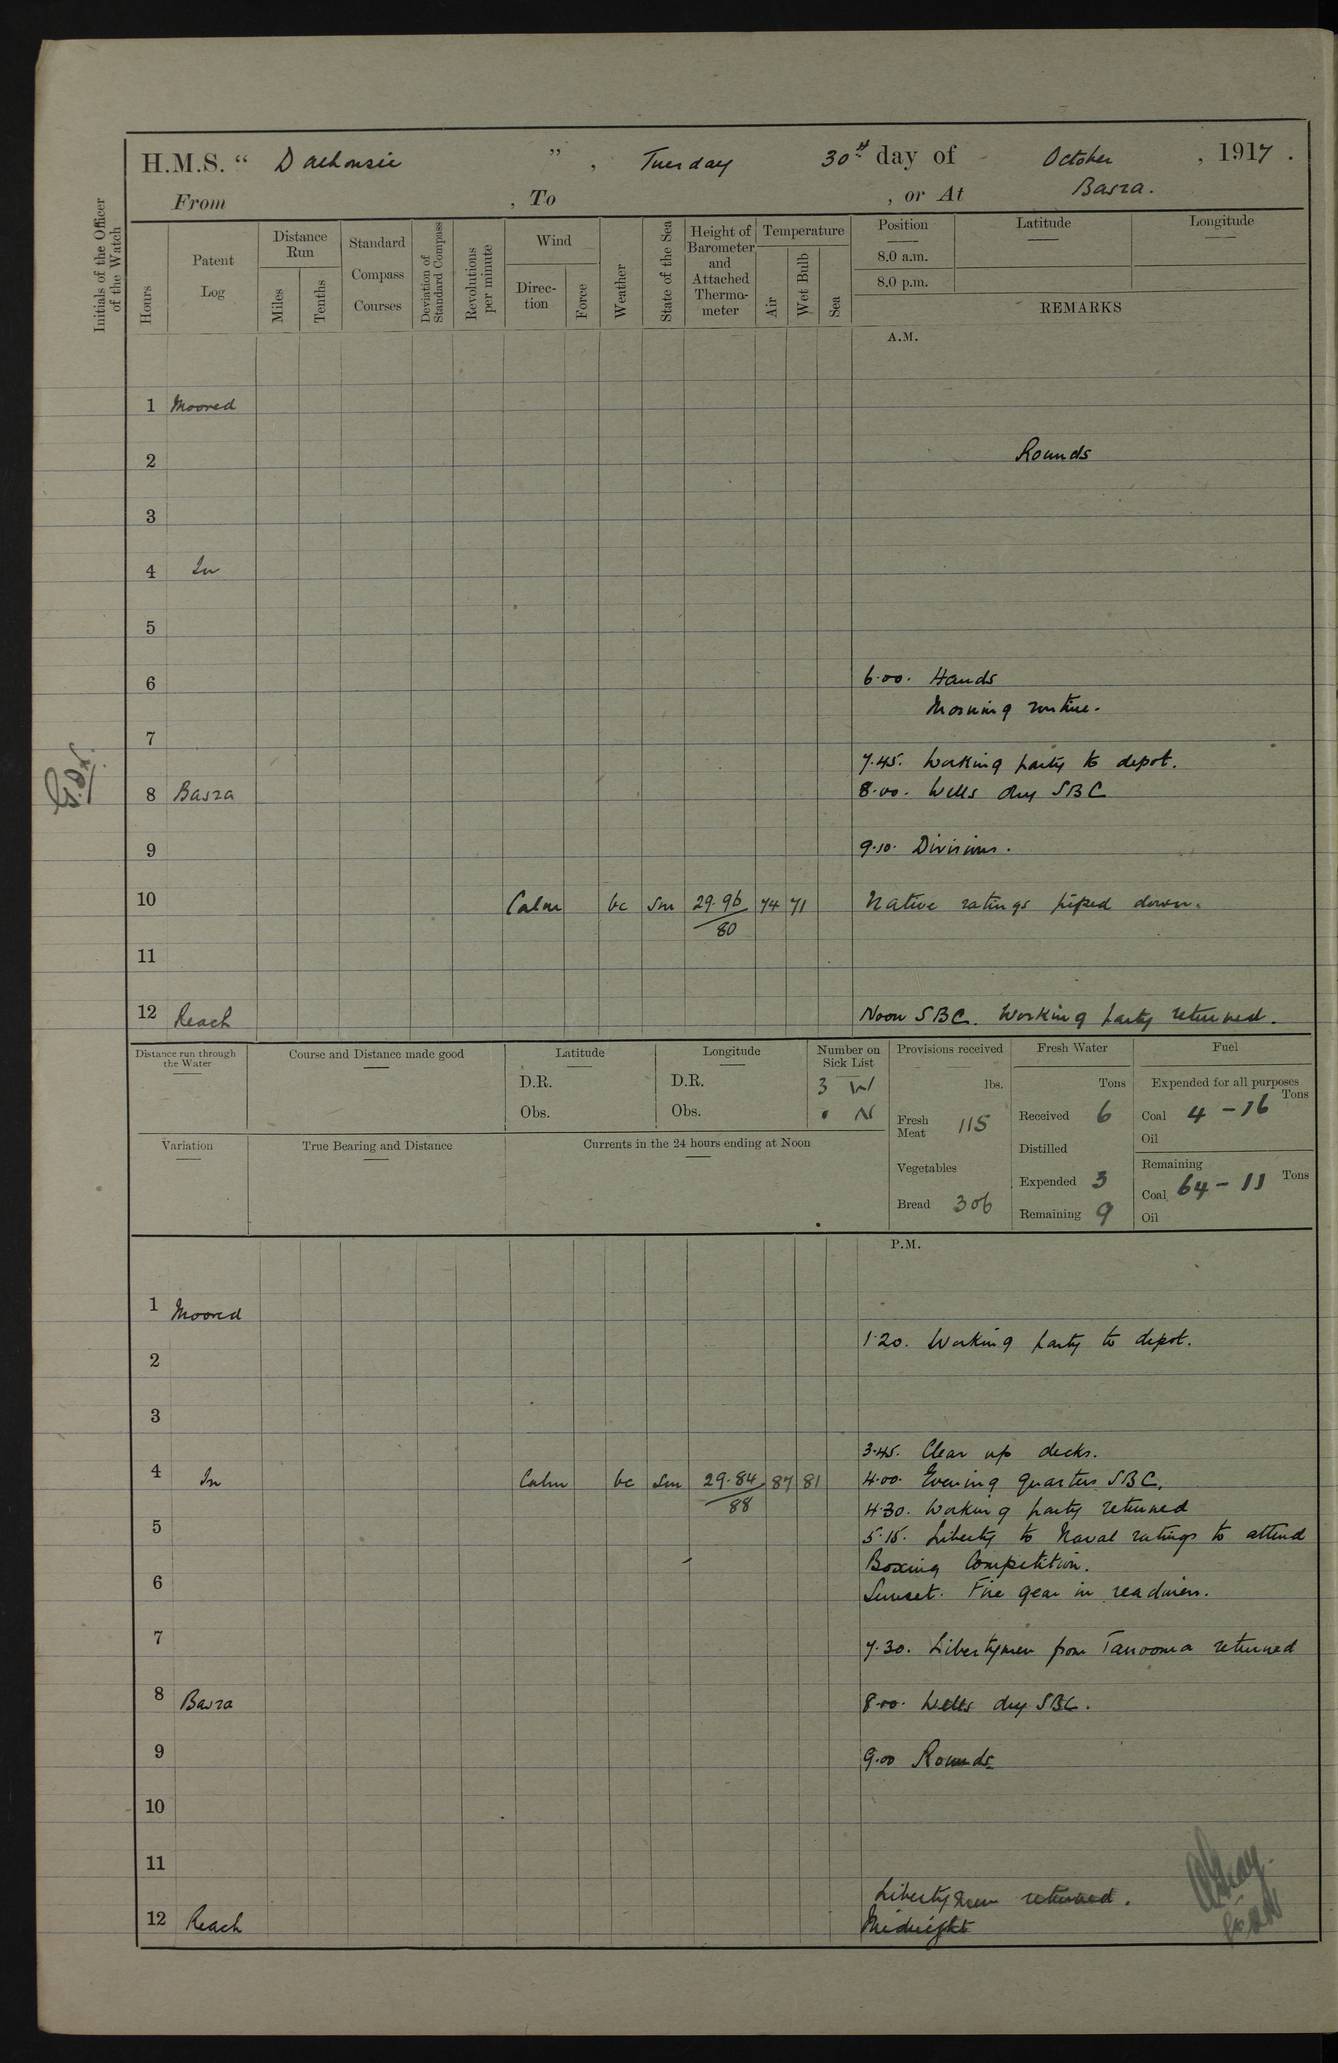 H.M.S. " Dalhousie ", Tuesday 30th day of October, 1917.
From , To , or At Basra.
Initials of the Officer of the Watch
Hours
Patent Log
Distance Run
Miles
Tenths
Standard Compass Courses
Deviation of Standard Compass
Revolutions per minute
Wind
Direction
Force
Weather
State of the Sea
Height of Barometer and Attached Thermometer
Temperature
Air
Wet Bulb
Sea
Position
Latitude
Longitude
8.0 a.m.
8.0 p.m.
REMARKS
A.M.
1 Moored
2 Rounds
3
4 In
5
6 6.00. Hands
Morning routine.
7
7.45. Working party to depot.
8 Basra 8.00. Wells dry SBC
9 9.10. Divisions.
10 Calm bc Sm 29.96 74 71 Native ratings piped down.
80
11
12 Reach Noon SBC. Working party returned.
Distance run through the Water
Course and Distance made good
Latitude
D.R.
Obs.
Longitude
D.R.
Obs.
Number on Sick List
3 W
0 N
Provisions received
lbs.
Fresh Meat 115
Vegetables
Bread 306
Fresh Water
Tons
Received 6
Distilled
Expended 3
Remaining 9
Fuel
Expended for all purposes
Tons
Coal 4-16
Oil
Remaining
Tons
Coal 64-11
Oil
Variation
True Bearing and Distance
Currents in the 24 hours ending at Noon
P.M.
1 Moored
1.20. Working party to depot.
2
3
3.45. Clear up decks.
4 In Calm bc Sm 29.84 87 81 4.00. Evening quarters SBC.
88
4.30. Working party returned
5 5.15. Liberty to Naval ratings to attend
Boxing Competition.
6 Sunset. Fire gear in readiness.
7 7.30. Libertymen from Tanooma returned
8 Basra 8.00. Wells dry SBC.
9 9.00 Rounds
10
11
Libertymen returned.
12 Reach Midnight